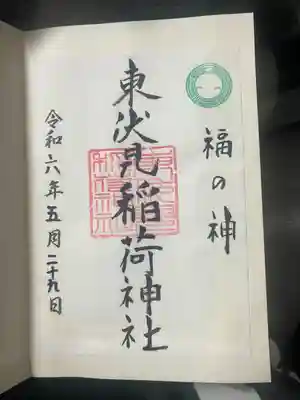 福の神
東伏見稲荷神社
令和六年五月二十九日